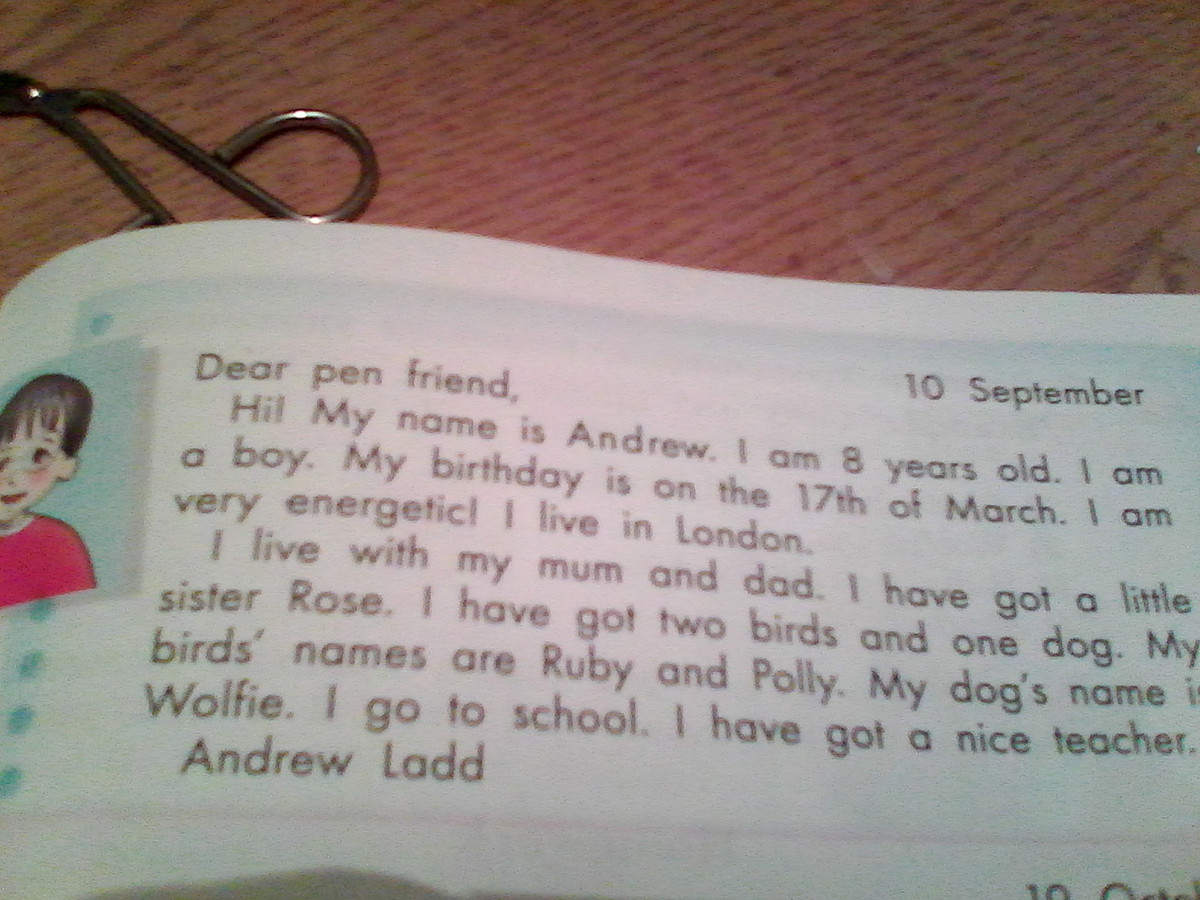 Dear pen friend,
10 September
Hi! My name is Andrew. I am 8 years old. I am
a boy. My birthday is on the 17th of March. I am
very energetic! I live in London.
I live with my mum and dad. I have got a little
sister Rose. I have got two birds and one dog. My
birds' names are Ruby and Polly. My dog's name
Wolfie. I go to school. I have got a nice teacher.
Andrew Ladd